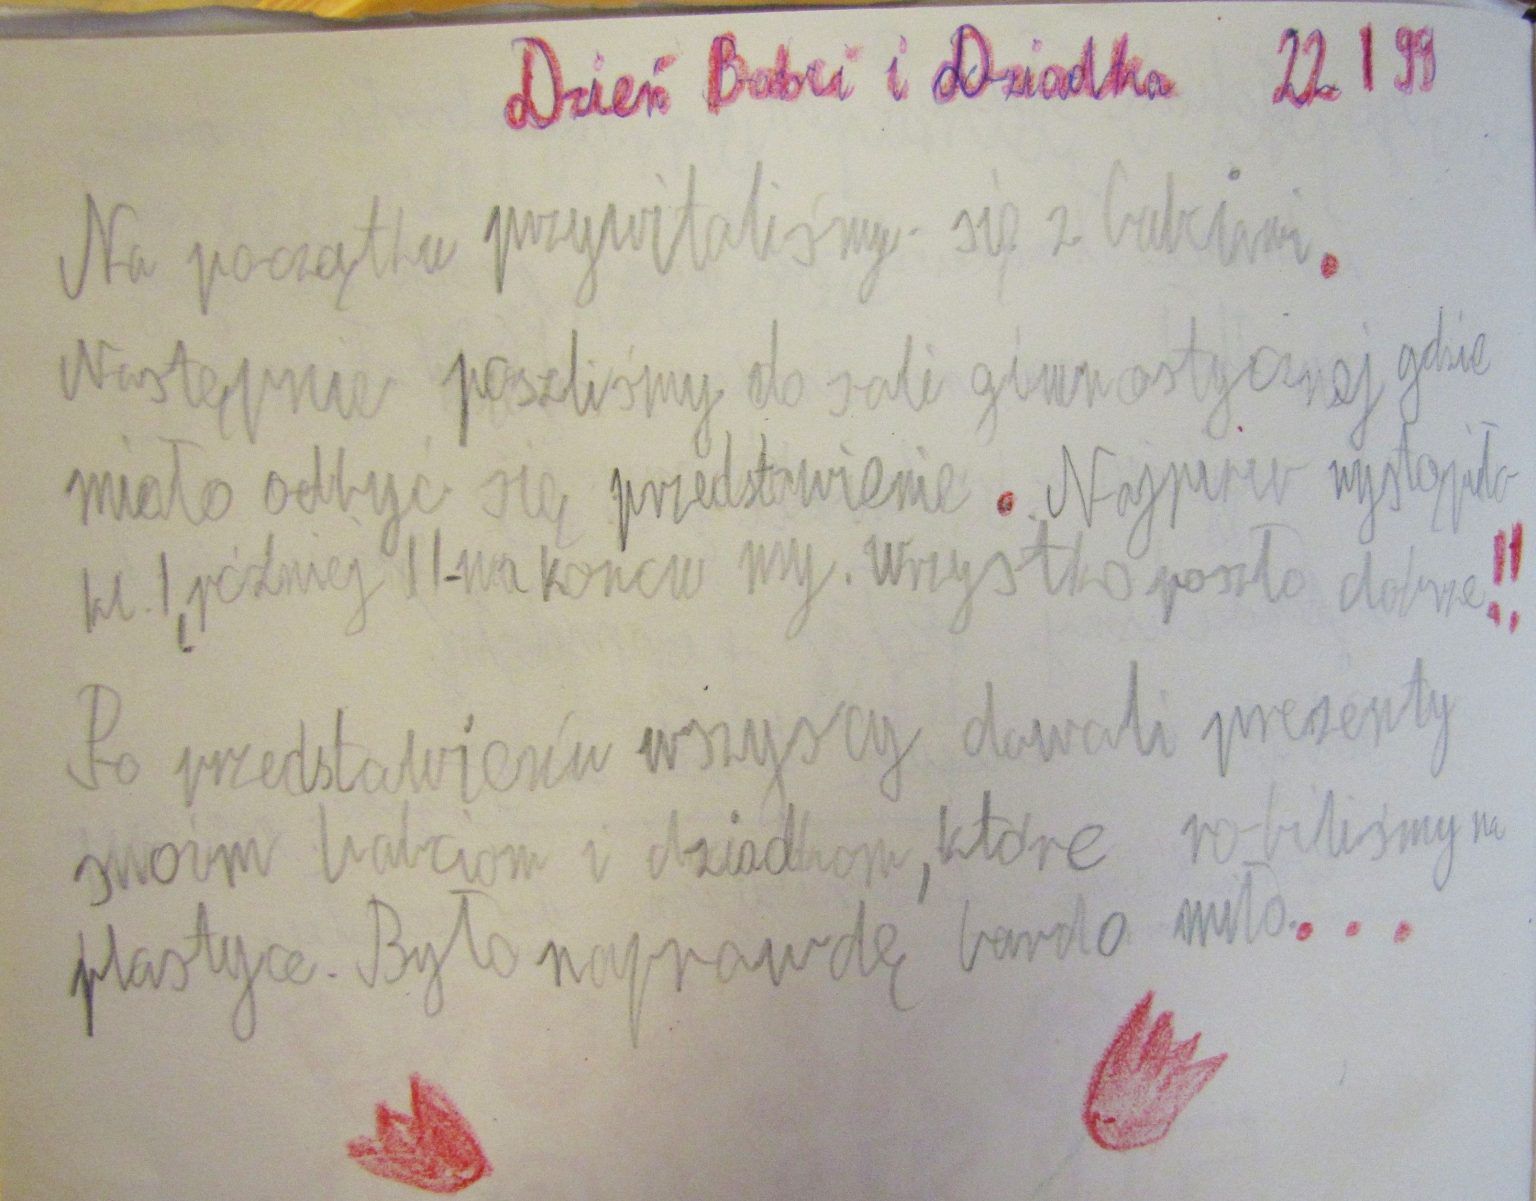 Dzień Babci i Dziadka 22 I 99
Na początku przywitaliśmy się z babciami.
Następnie poszliśmy do sali gimnastycznej gdzie
miało odbyć się przedstawienie. Najpierw wystąpiła
kl. I, później II-na końcu my. Wszystko poszło dobrze!!
Po przedstawieniu wszyscy dawali prezenty
swoim babciom i dziadkom, które robiliśmy na
plastyce. Było naprawdę bardo miło....